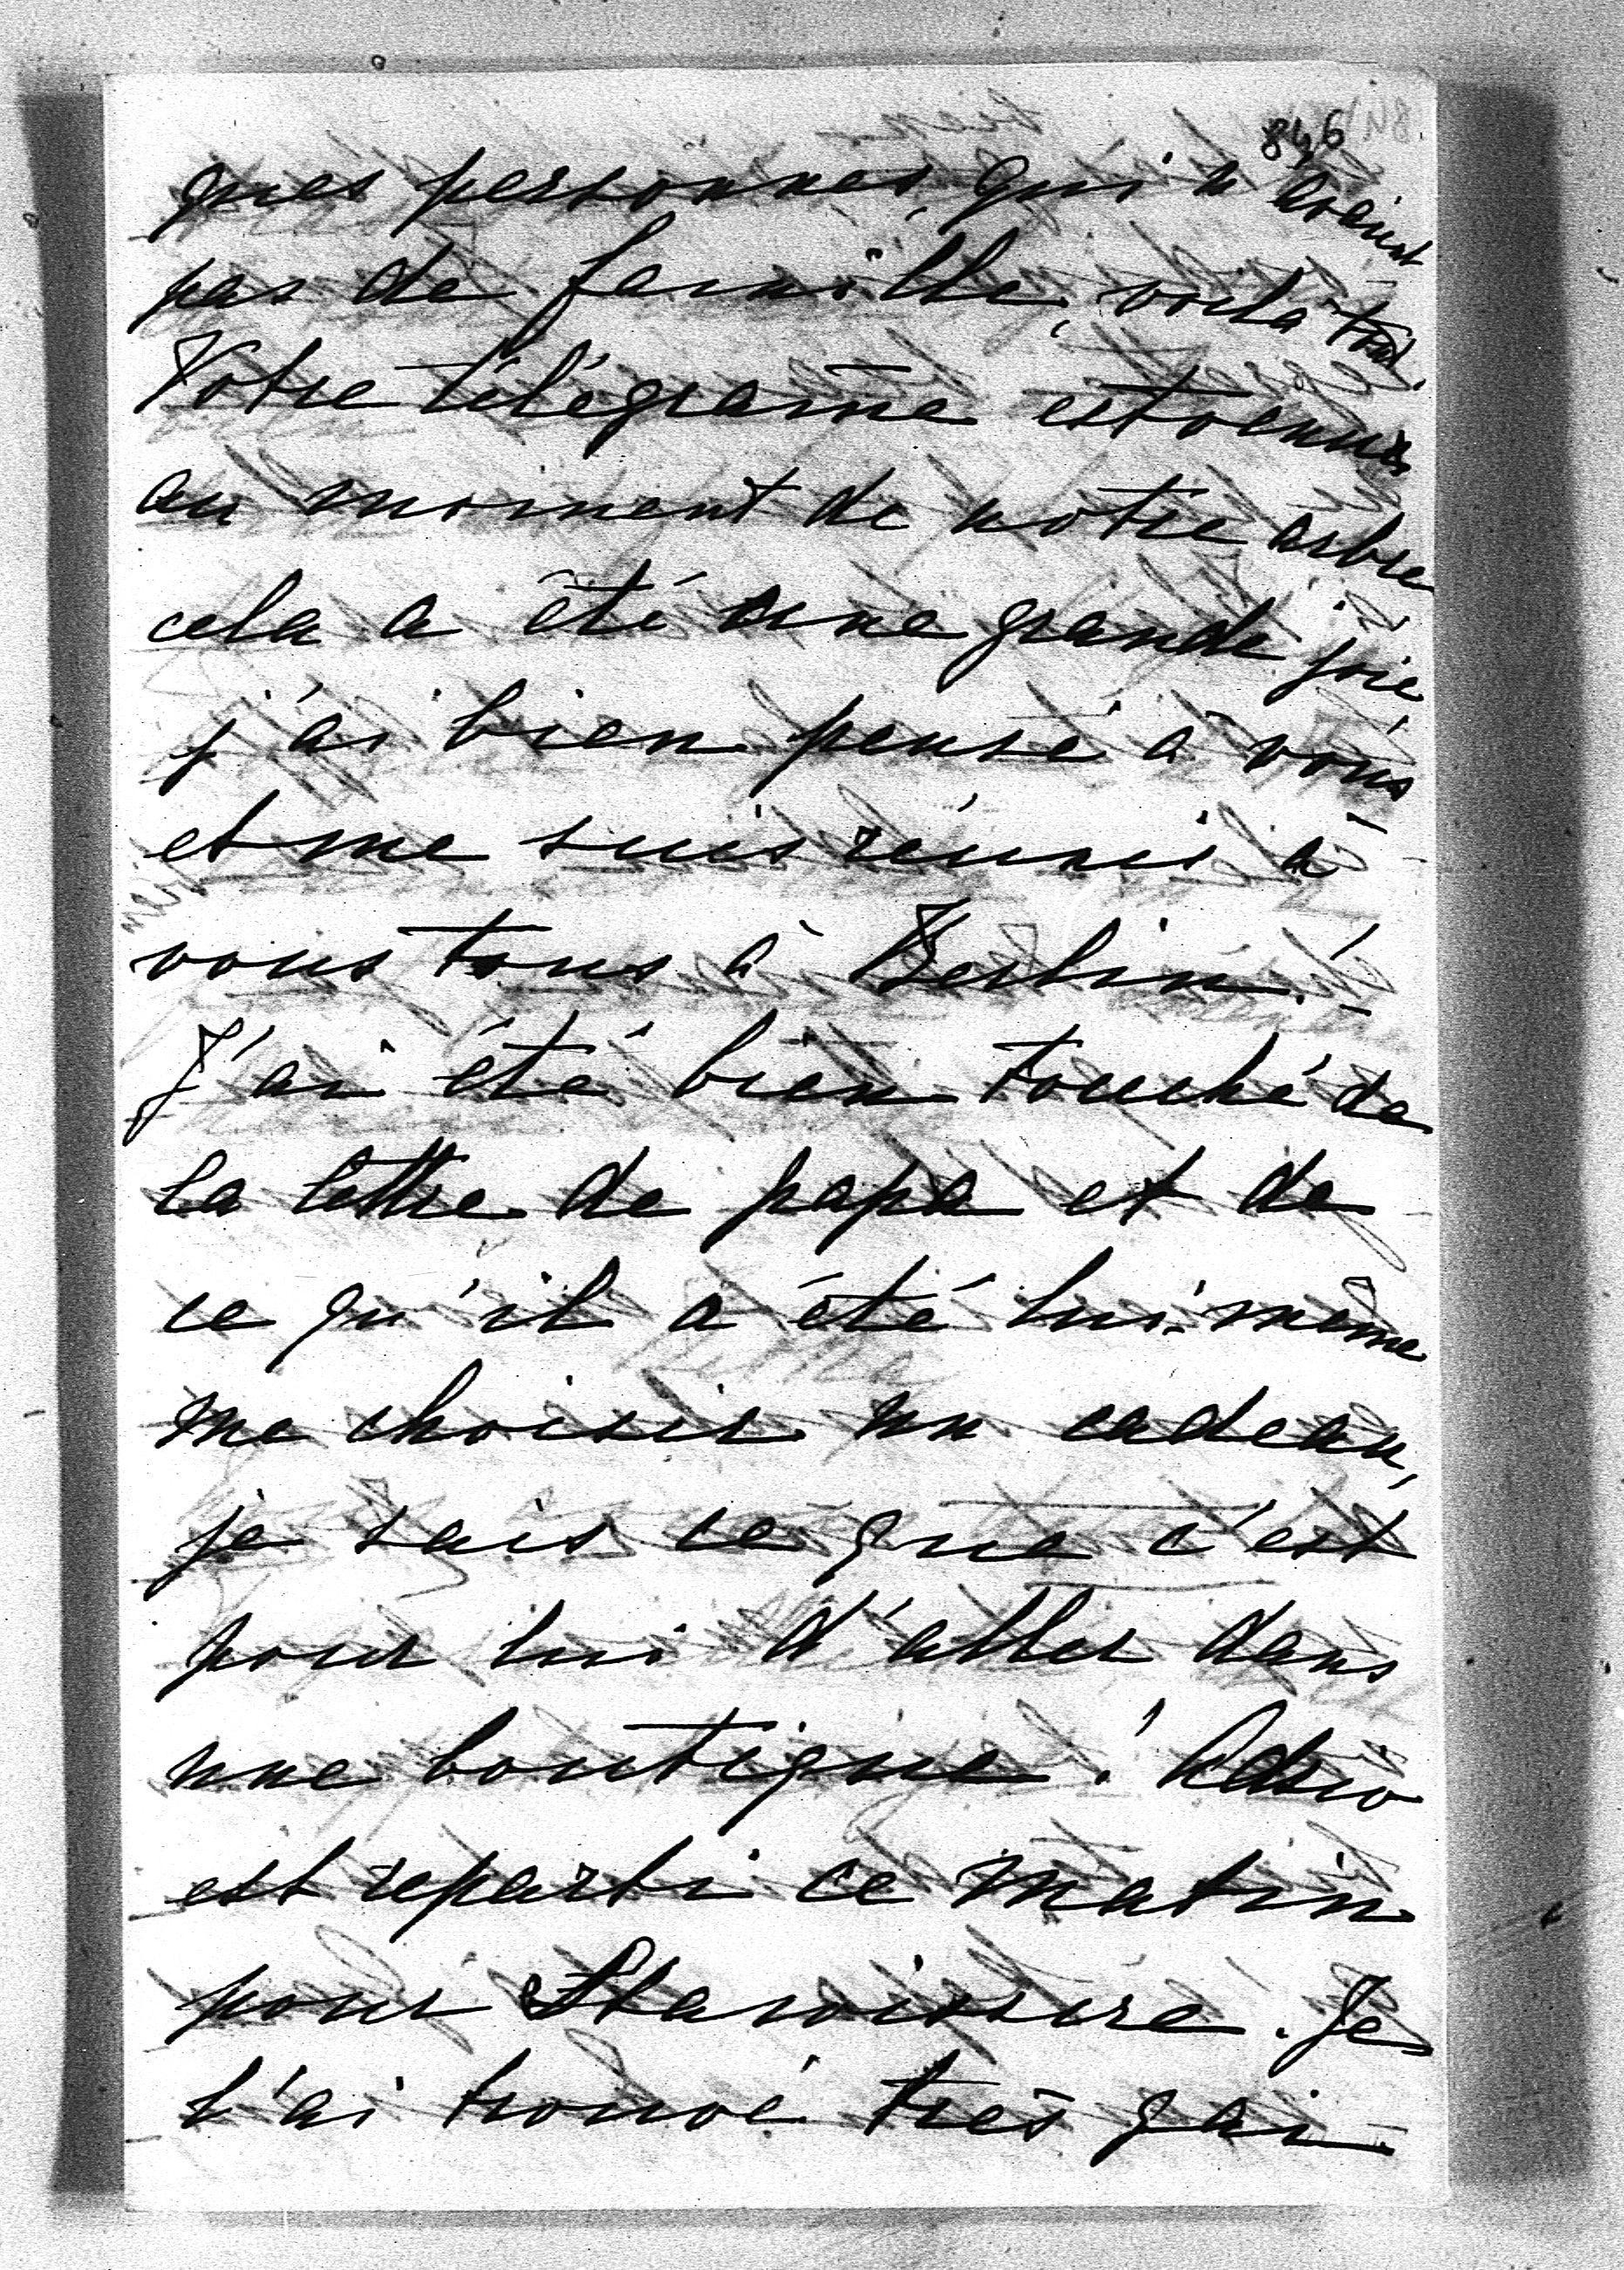 846
ques personnes qui n'avaient
pas de famille, voilà tout.
Votre télégramme est venu
au moment de notre arbre
cela a été une grande joie,
j'ai bien pensé à vous
et me suis réuni à
vous tous à Berlin!
J'ai été bien touché de
la lettre de papa et de
ce qu'il a été lui-même
me choisir un cadeau,
je sais ce que c'est
pour lui d'aller dans
une boutique! 
est reparti ce matin
pour . Je
l'ai trouvé très gai